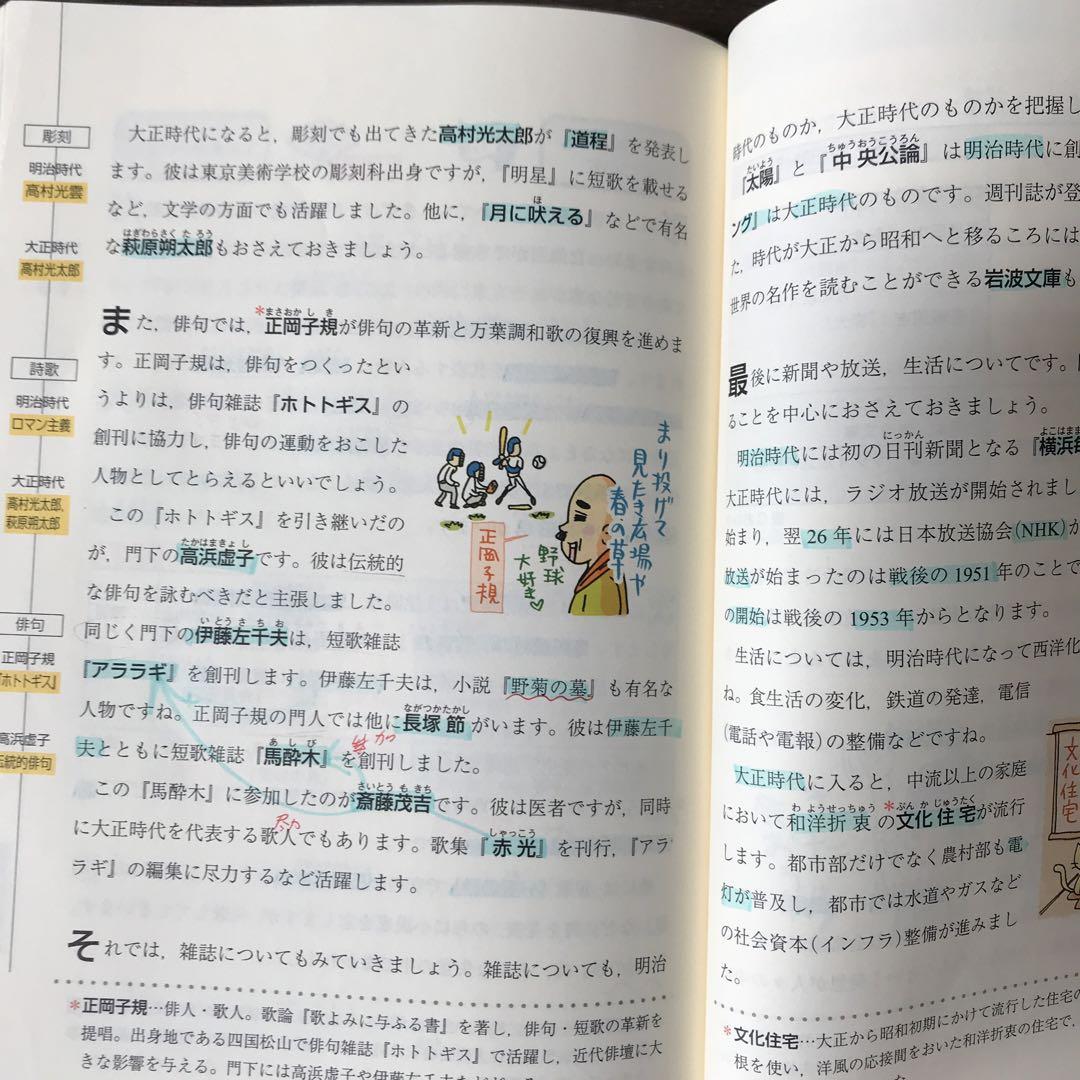 彫刻
明治時代
高村光雲
大正時代
高村光太郎
詩歌
明治時代
ロマン主義
大正時代
高村光太郎,
萩原朔太郎
俳句
正岡子規
『ホトトギス』
高浜虚子
伝統的俳句
大正時代になると，彫刻でも出てきた高村光太郎が『道程』を発表し
ます。彼は東京美術学校の彫刻科出身ですが，『明星』に短歌を載せる
など，文学の方面でも活躍しました。他に，『月に吠える』などで有名
な萩原朔太郎もおさえておきましょう。
また，俳句では，*正岡子規が俳句の革新と万葉調和歌の復興を進めま
す。正岡子規は，俳句をつくったとい
うよりは，俳句雑誌『ホトトギス』の
創刊に協力し，俳句の運動をおこした
人物としてとらえるといいでしょう。
この『ホトトギス』を引き継いだの
が，門下の高浜虚子です。彼は伝統的
な俳句を詠むべきだと主張しました。
同じく門下の伊藤左千夫は，短歌雑誌
『アララギ』を創刊します。伊藤左千夫は，小説『野菊の墓』も有名な
人物ですね。正岡子規の門人では他に長塚節がいます。彼は伊藤左千
夫とともに短歌雑誌『馬酔木』を創刊しました。
参加
この『馬酔木』に参加したのが斎藤茂吉です。彼は医者ですが，同時
に大正時代を代表する歌人でもあります。歌集『赤光』を刊行，『アラ
ラギ』の編集に尽力するなど活躍します。
それでは，雑誌についてもみていきましょう。雑誌についても，明治
*正岡子規…俳人・歌人。歌論『歌よみに与ふる書』を著し，俳句・短歌の革新を
提唱。出身地である四国松山で俳句雑誌『ホトトギス』で活躍し，近代俳壇に大
きな影響を与える。門下には高浜虚子や伊藤左千夫などがいる
まり投げて
見たき広場や
春の草
野球
大好き♡
正岡子規
時代のものか，大正時代のものかを把握し
『太陽』と『中央公論』は明治時代に創
ング』は大正時代のものです。週刊誌が登
た，時代が大正から昭和へと移るころには
世界の名作を読むことができる岩波文庫も
最後に新聞や放送，生活についてです。
ることを中心におさえておきましょう。
明治時代には初の日刊新聞となる『横浜毎
大正時代には，ラジオ放送が開始されまし
始まり，翌26年には日本放送協会(NHK)が
放送が始まったのは戦後の1951年のことで
の開始は戦後の1953年からとなります。
生活については，明治時代になって西洋化
ね。食生活の変化，鉄道の発達，電信
(電話や電報)の整備などですね。
大正時代に入ると，中流以上の家庭
において和洋折衷の*文化住宅が流行
します。都市部だけでなく農村部も電
灯が普及し，都市では水道やガスなど
の社会資本(インフラ)整備が進みまし
た。
文化住宅
*文化住宅…大正から昭和初期にかけて流行した住宅の
根を使い，洋風の応接間をおいた和洋折衷の住宅で，